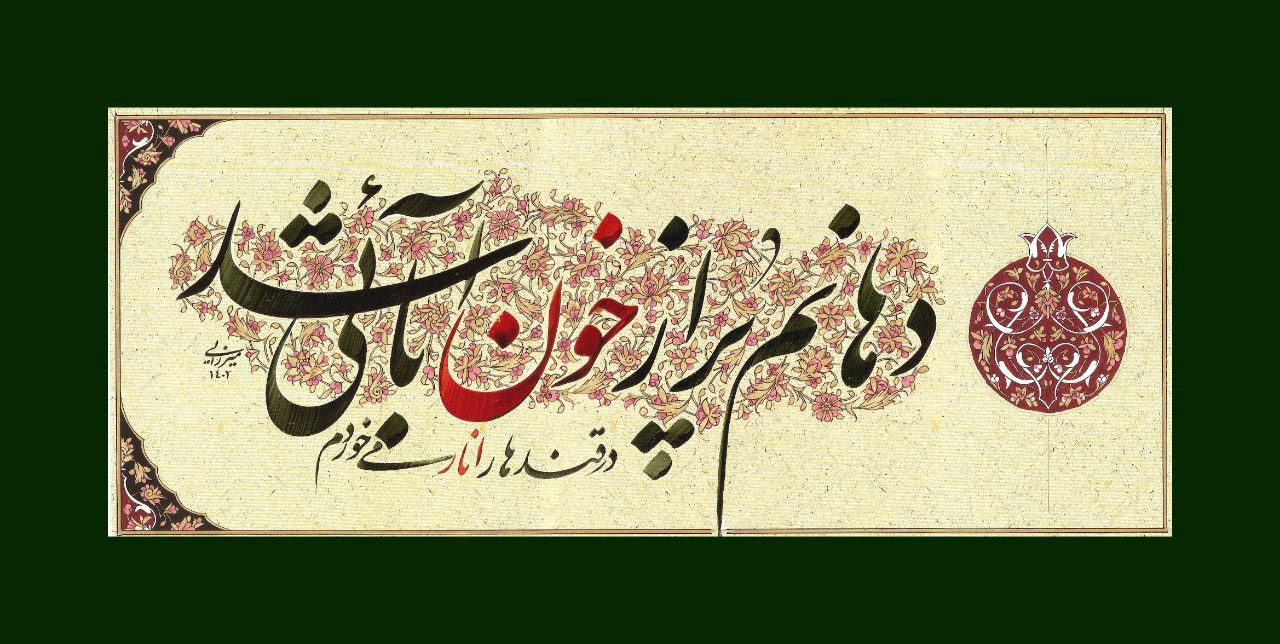 دهانم پُر از خون آبائی شد
در قندهار انار می‌خوردم
میرزایی
۱۴۰۲